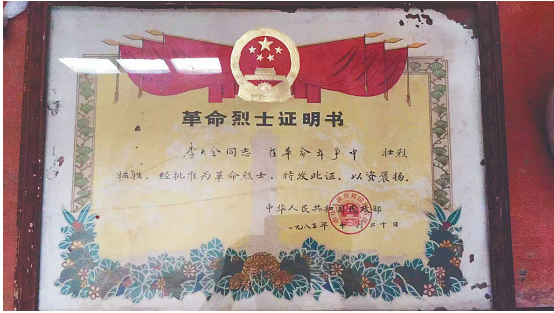 革命烈士证明书
李大金同志 在革命斗争中 壮烈
牺牲,经批准为革命烈士,特发此证,以资褒扬。
中华人民共和国民政部
一九八三年 月三十日